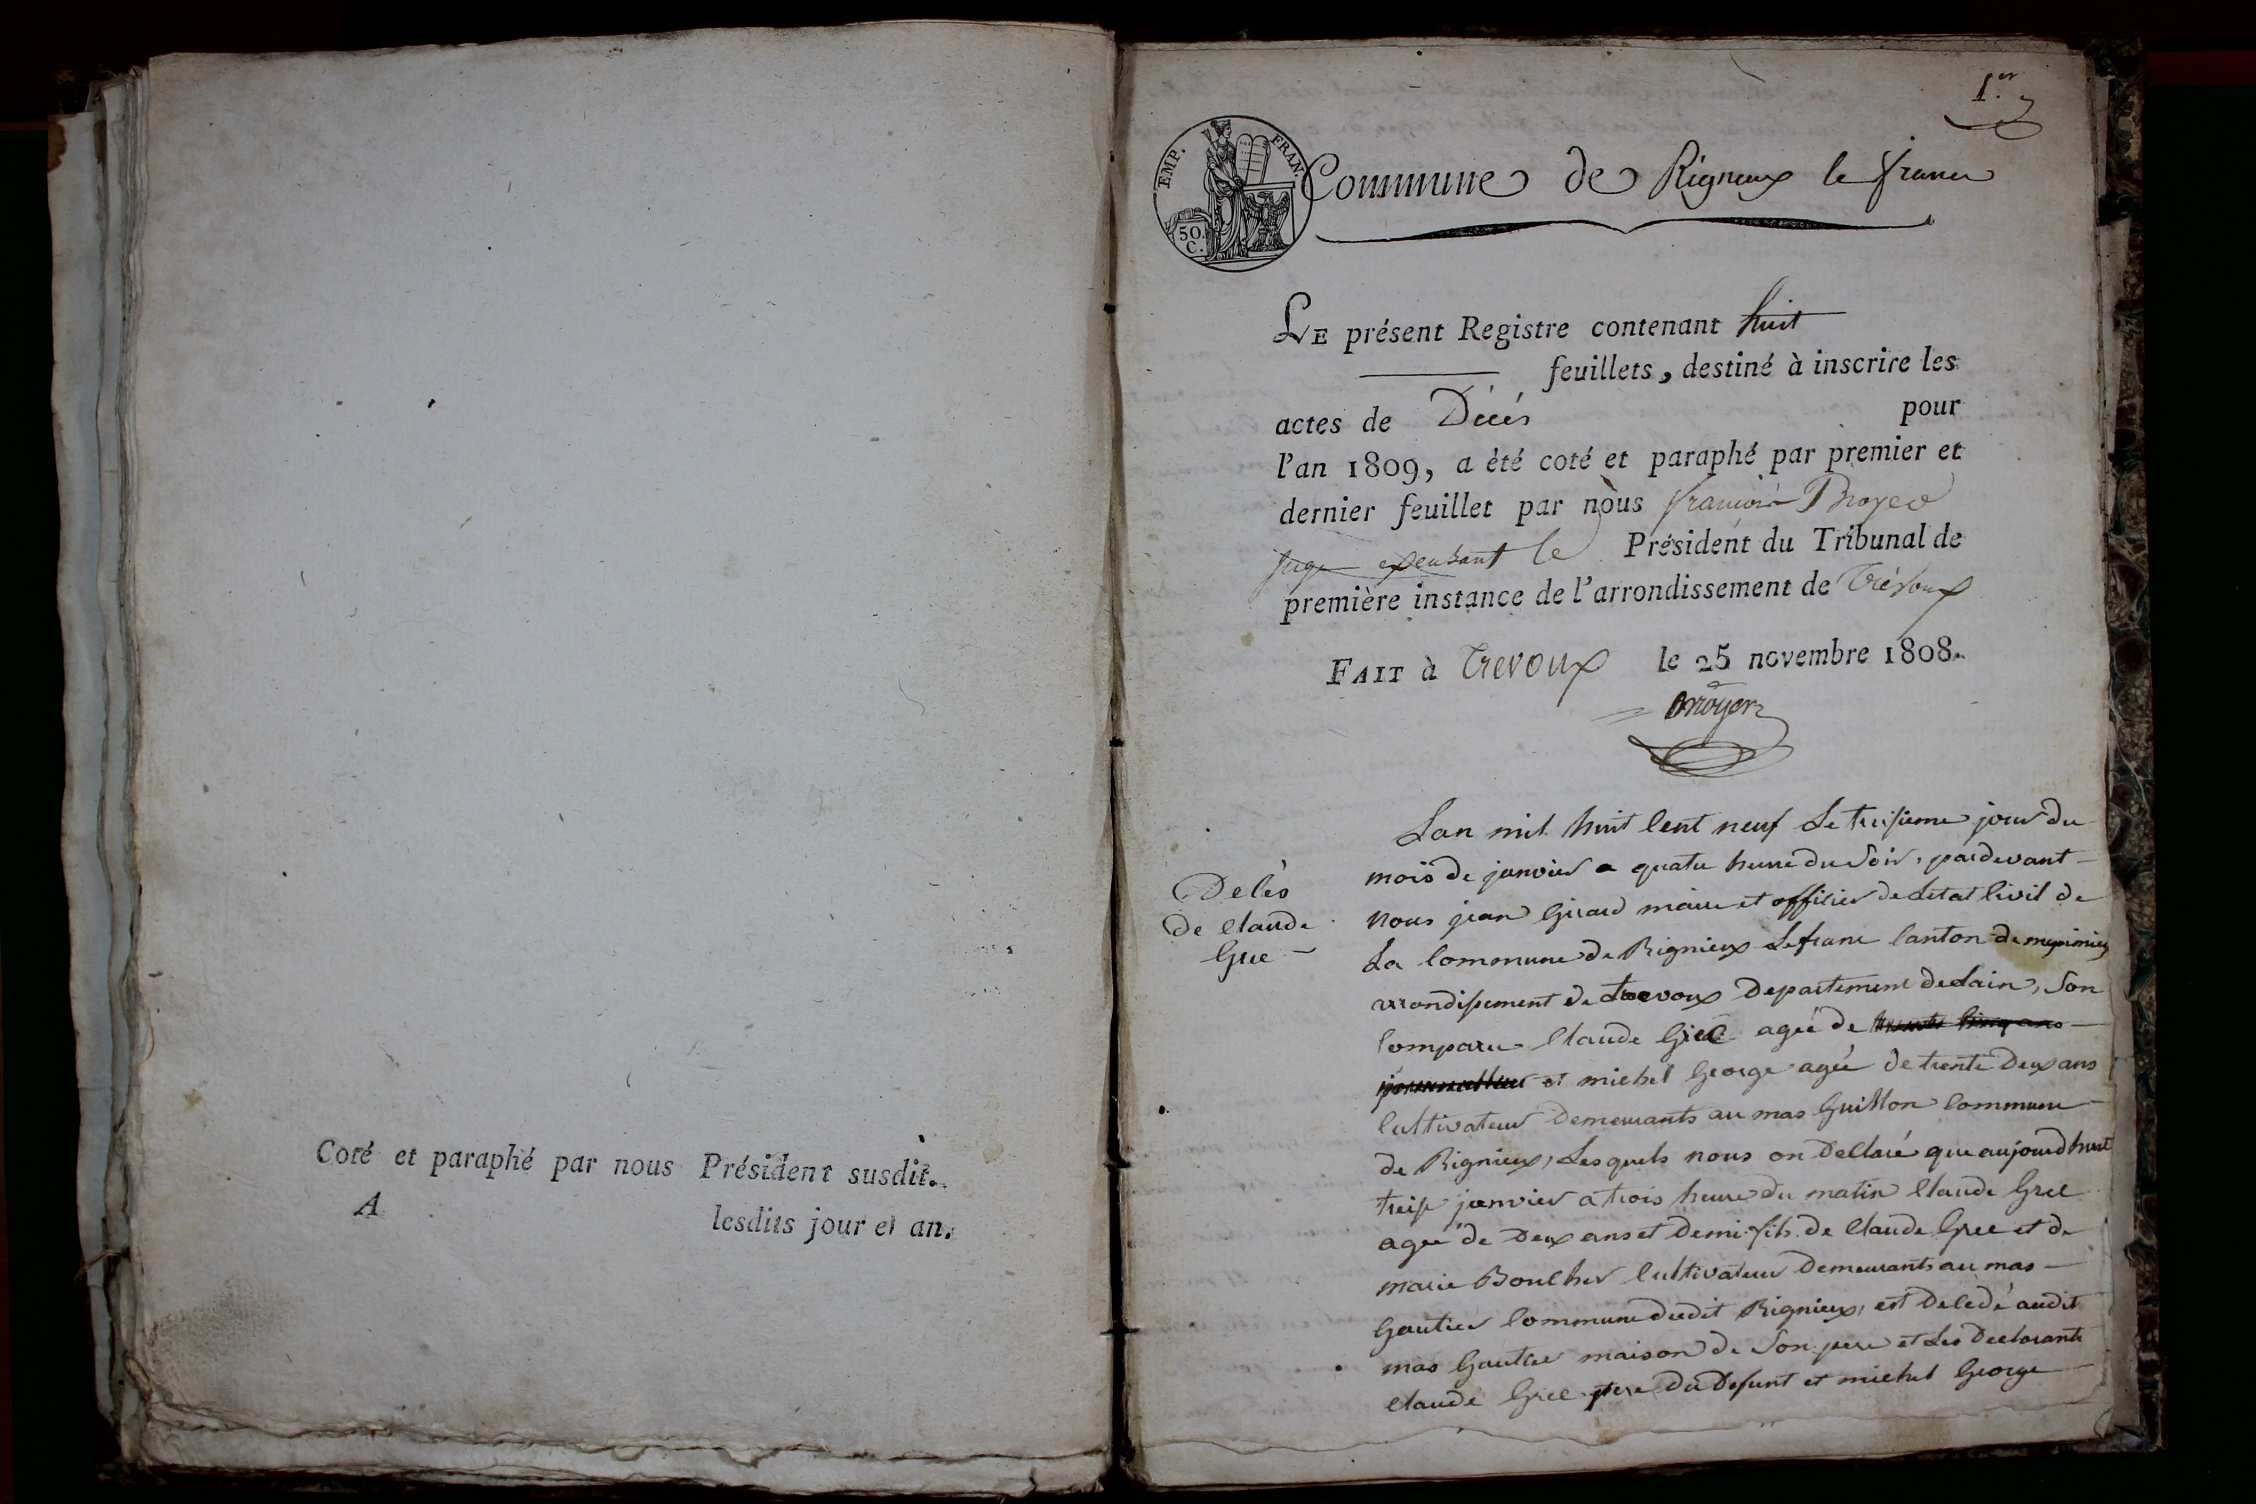 Coté et paraphé par nous Président susdit.
A lesdits jour et an.
1.er
EMP. FRAN.
50.
C.
Commune de Rigneux le franc
LE présent Registre contenant huit
feuillets, destiné à inscrire les
actes de Décés pour
l'an 1809, a été coté et paraphé par premier et
dernier feuillet par nous françois
le Président du Tribunal de
première instance de l'arrondissement de Trévoux
FAIT à Trevoux le 25 novembre 1808.
Decès
de Claude
Lan mil huit Cent neuf Le treisieme jour du
mois de janvier a quatre heure du Soir, pardevant
nous jean Girard maire et officier de Letat Civil de
La Commune de Rignieux Lefranc Canton de meximieux
arrondissement de trevoux Departement de Lain, Son
Comparu Claude Grec agée de
et michel George agée de trente Deux ans
Cultivateur Demeurants au mas Guillon Commune
de Rignieux, Lesquels nous on Declaré que aujourdhuit
treise janvier a trois heure du matin Claude Grec
agée de Deux ans et Demi fils de Claude Grec et de
marie Boucher Cultivateur Demeurants au mas
Gautier Commune dudit Rignieux, est Decedé audit
mas Gautier maison de Son pere et Les Declarants
Claude Grec pere du Defunt et michel George